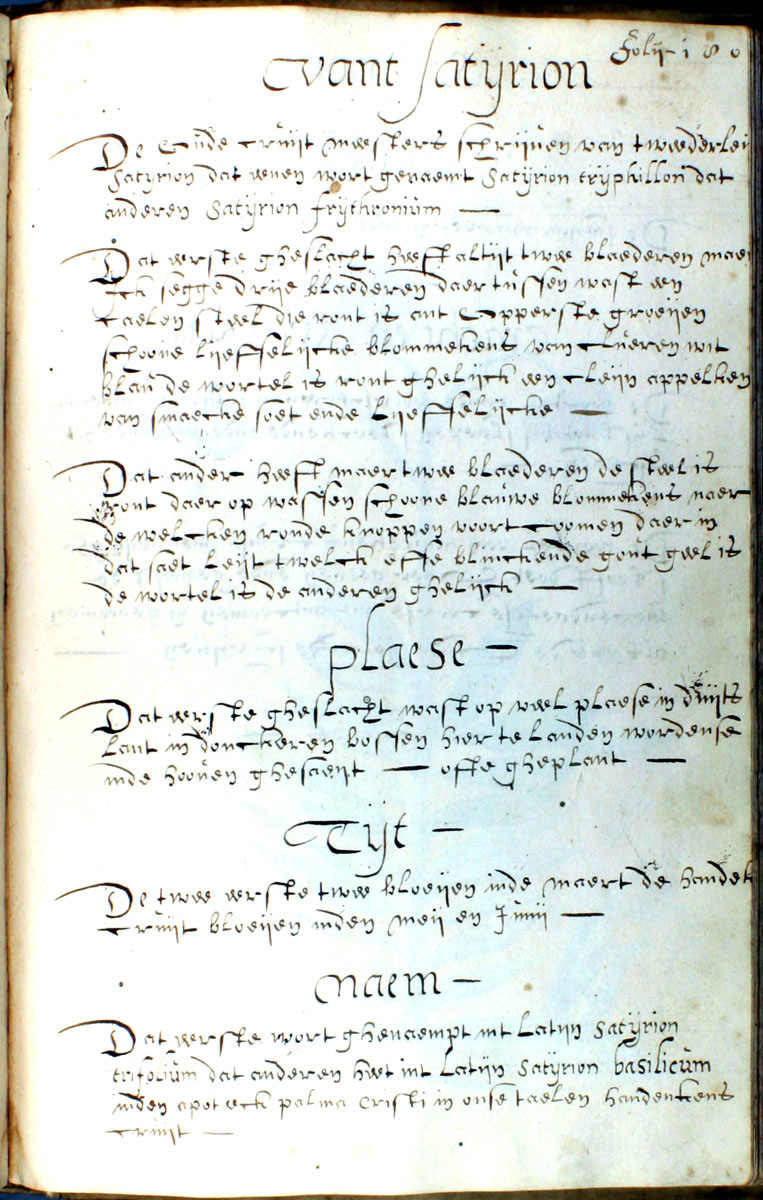 Folij 180
Vant Satyrion
De Oude cruijt meesters schrijven van tweederleij
Satyrion dat eenen wort genaemt Satyrion tryphillon dat
anderen Satyrion frythronium —
Dat eerste gheslacht heeft altijt twee blaederen maer
Ick segge drije blaederen daer tussen wast een
caelon steel die ront is ant Opperste groeijen
schoone lijeffelijcke blommekens van clueren wit
blau de wortel is ront ghelijck een cleijn appelken
van smaecke soet ende lijeffelijcke —
Dat ander heeft maer twee blaederen de steel is
ront daer op wassen schoone blauwe blommekens naer
de welcken ronde knoppen voort coomen daer in
dat saet leijt twelck effe blinckende gout geel is
de wortel is de anderen ghelijck —
plaese —
Dat eerste gheslacht wast op veel plaese in duijts
lant in donckeren bossen hier te landen wordense
inde hooven ghesaeijt — ofte gheplant —
Tijt —
De twee eerste twee bloeijen inde maert de handek
cruijt bloeijen inden meij en Junij —
Naem —
Dat eerste wort ghenaempt int Latijn Satyrion
trifolium dat anderen heet int Latijn Satyrion basilicum
inden apoteeck palma Cristi in onse taelen handenkens
cruijt —